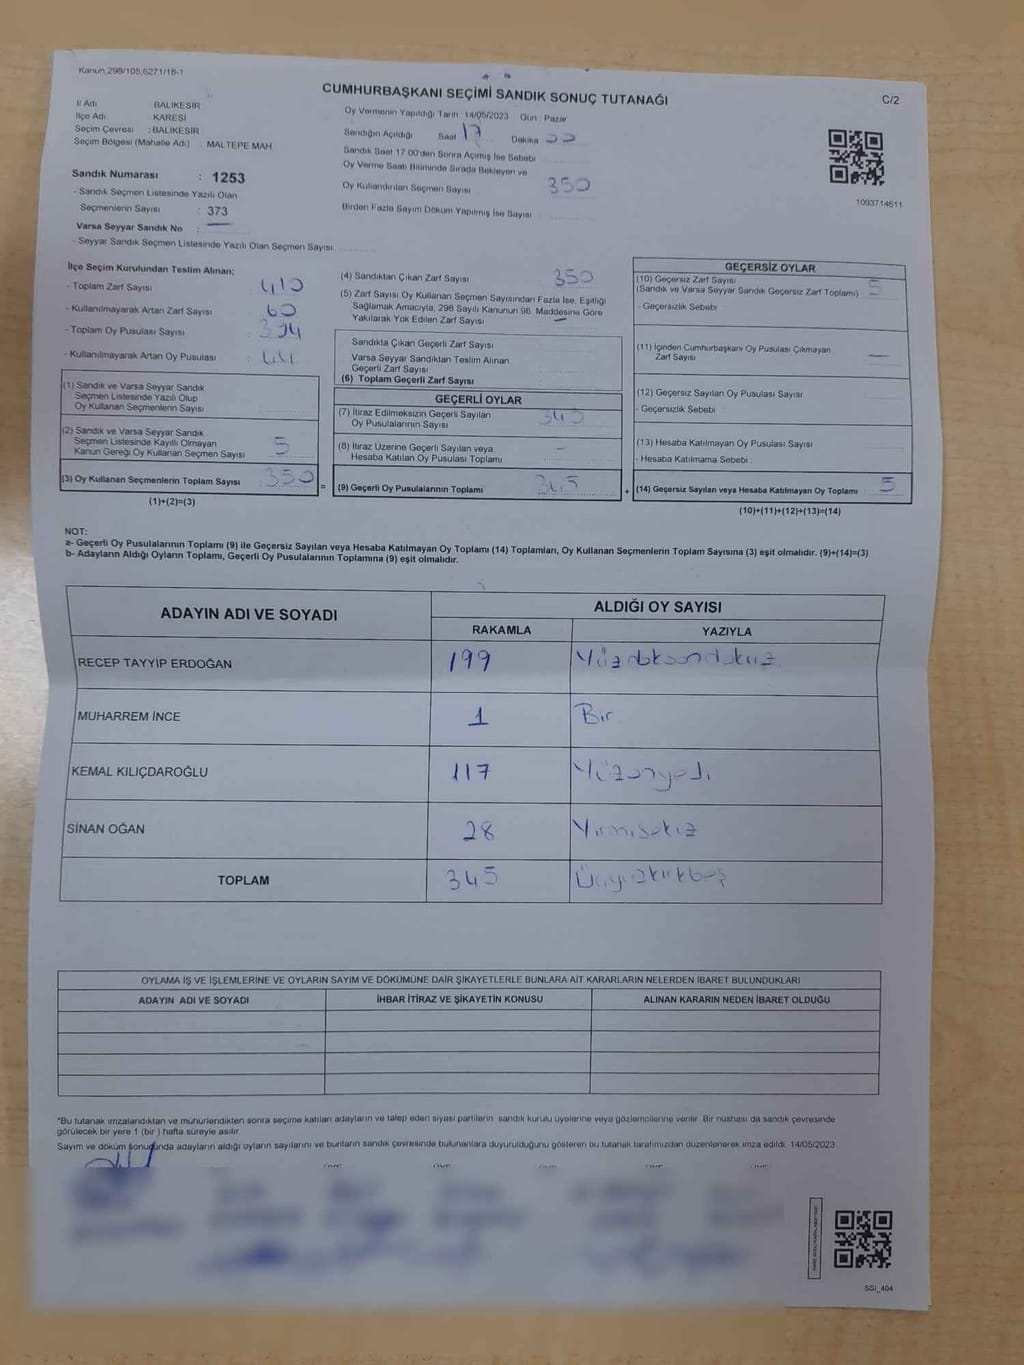 Kanun,298/105,6271/18-1
CUMHURBAŞKANI SEÇİMİ SANDIK SONUÇ TUTANAĞI
C/2
İl Adı BALIKESİR
İlçe Adı KARESİ
Seçim Çevresi : BALIKESİR
Seçim Bölgesi (Mahalle Adı) : MALTEPE MAH
Oy Vermenin Yapıldığı Tarih 14/05/2023 Gün : Pazar
Sandığın Açıldığı Saat 17 Dakika 00
Sandık Saat 17:00'den Sonra Açılmış İse Sebebi
Oy Verme Saati Bitiminde Sırada Bekleyen ve
Oy Kullandırılan Seçmen Sayısı 350
Birden Fazla Sayım Döküm Yapılmış İse Sayısı
1093714611
Sandık Numarası : 1253
- Sandık Seçmen Listesinde Yazılı Olan
Seçmenlerin Sayısı : 373
Varsa Seyyar Sandık No :
- Seyyar Sandık Seçmen Listesinde Yazılı Olan Seçmen Sayısı
İlçe Seçim Kurulundan Teslim Alınan;
- Toplam Zarf Sayısı : 410
- Kullanılmayarak Artan Zarf Sayısı : 60
- Toplam Oy Pusulası Sayısı :
- Kullanılmayarak Artan Oy Pusulası : 44
(1) Sandık ve Varsa Seyyar Sandık
Seçmen Listesinde Yazılı Olup
Oy Kullanan Seçmenlerin Sayısı
(2) Sandık ve Varsa Seyyar Sandık
Seçmen Listesinde Kayıtlı Olmayan
Kanun Gereği Oy Kullanan Seçmen Sayısı 5
(3) Oy Kullanan Seçmenlerin Toplam Sayısı 350 =
(1)+(2)=(3)
(4) Sandıktan Çıkan Zarf Sayısı 350
(5) Zarf Sayısı Oy Kullanan Seçmen Sayısından Fazla İse, Eşitliği
Sağlamak Amacıyla, 298 Sayılı Kanunun 98. Maddesine Göre
Yakılarak Yok Edilen Zarf Sayısı —
Sandıkta Çıkan Geçerli Zarf Sayısı
Varsa Seyyar Sandıktan Teslim Alınan
Geçerli Zarf Sayısı
(6) Toplam Geçerli Zarf Sayısı
GEÇERLİ OYLAR
(7) İtiraz Edilmeksizin Geçerli Sayılan
Oy Pusulalarının Sayısı 345
(8) İtiraz Üzerine Geçerli Sayılan veya
Hesaba Katılan Oy Pusulası Toplamı —
(9) Geçerli Oy Pusulalarının Toplamı 345 +
GEÇERSİZ OYLAR
(10) Geçersiz Zarf Sayısı 5
(Sandık ve Varsa Seyyar Sandık Geçersiz Zarf Toplamı)
- Geçersizlik Sebebi
(11) İçinden Cumhurbaşkanı Oy Pusulası Çıkmayan
Zarf Sayısı —
(12) Geçersiz Sayılan Oy Pusulası Sayısı
- Geçersizlik Sebebi
(13) Hesaba Katılmayan Oy Pusulası Sayısı
- Hesaba Katılmama Sebebi
(14) Geçersiz Sayılan veya Hesaba Katılmayan Oy Toplamı 5
(10)+(11)+(12)+(13)=(14)
NOT:
a- Geçerli Oy Pusulalarının Toplamı (9) ile Geçersiz Sayılan veya Hesaba Katılmayan Oy Toplamı (14) Toplamları, Oy Kullanan Seçmenlerin Toplam Sayısına (3) eşit olmalıdır. (9)+(14)=(3)
b- Adayların Aldığı Oyların Toplamı, Geçerli Oy Pusulalarının Toplamına (9) eşit olmalıdır.
ADAYIN ADI VE SOYADI ALDIĞI OY SAYISI
RAKAMLA YAZIYLA
RECEP TAYYİP ERDOĞAN 199 Yüzdoksandokuz
MUHARREM İNCE 1 Bir
KEMAL KILIÇDAROĞLU 117 Yüzonyedi
SİNAN OĞAN 28 Yirmisekiz
TOPLAM 345 Üçyüzkırkbeş
OYLAMA İŞ VE İŞLEMLERİNE VE OYLARIN SAYIM VE DÖKÜMÜNE DAİR ŞİKAYETLERLE BUNLARA AİT KARARLARIN NELERDEN İBARET BULUNDUKLARI
ADAYIN ADI VE SOYADI İHBAR İTİRAZ VE ŞİKAYETİN KONUSU ALINAN KARARIN NEDEN İBARET OLDUĞU
*Bu tutanak imzalandıktan ve mühürlendikten sonra seçime katılan adayların ve talep eden siyasi partilerin sandık kurulu üyelerine veya gözlemcilerine verilir. Bir nüshası da sandık çevresinde
görülecek bir yere 1 (bir ) hafta süreyle asılır.
Sayım ve döküm sonucunda adayların aldığı oyların sayılarını ve bunların sandık çevresinde bulunanlara duyurulduğunu gösteren bu tutanak tarafımızdan düzenlenerek imza edildi. 14/05/2023
SSİ_404